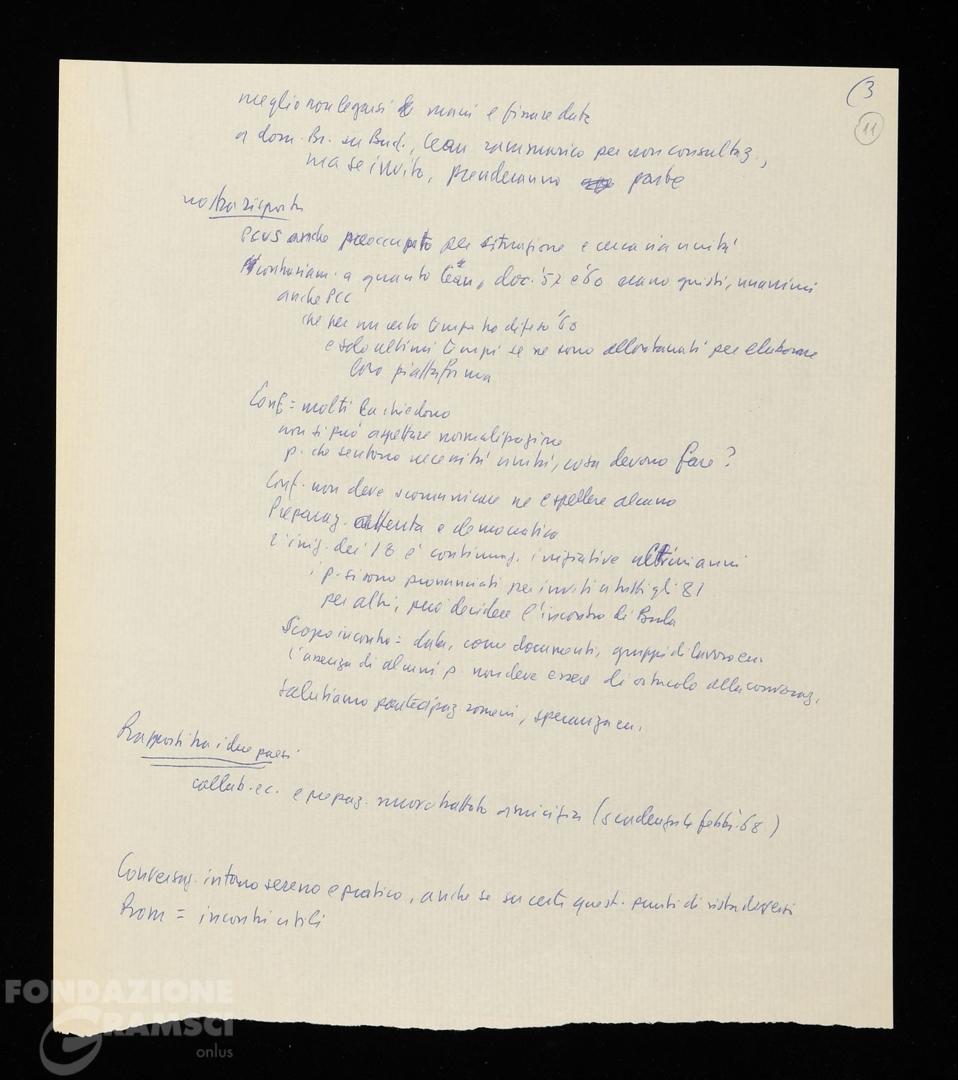 3
11
meglio non legarsi le mani e fissare data
a dom. Br. su Bud., Ceau rammarico per non consultaz.,
ma se invito, prenderanno parte
nostra risposta
PCUS anche preoccupato per situazione e cerca via unità
contrariam. a quanto Ceau, doc. '57 e '60 erano giusti, unanimi
anche PCC
che per un certo tempo ha difeso '60
e solo ultimi tempi se ne sono allontanati per elaborare
loro piattaforma
Conf = molti la chiedono
non si può aspettare normalizzazione
p. che sentono necessità unità, cosa devono fare?
Conf. non deve scomunicare ne espellere alcuno
Preparaz. attenta e democratica
L'iniz. dei 18 è continuaz. iniziative ultimi anni
i p. si sono pronunciati per inviti a tutti gli 81
per altri, può decidere l'incontro di Buda
Scopo incontro = data, come documenti, gruppi di lavoro ecc.
l'assenza di alcuni p. non deve essere di ostacolo alla convocaz.
Salutiamo partecipaz romeni, speranza ecc.
Rapporti tra i due paesi
collab. ec. e prepaz. nuovo trattato amicizia (scadenza 4 febb. 68)
Conversaz. in tono sereno e pratico, anche se su certe quest. punti di vista diversi
Rom = incontri utili
FONDAZIONE
GRAMSCI
onlus